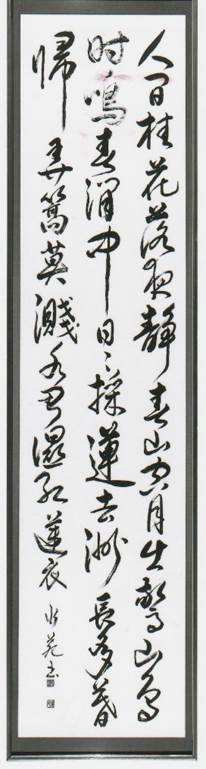 人閒桂花落夜靜春山空月出驚山鳥
时鳴春澗中日々採蓮去洲長多暮
歸弄篙莫濺水畏濕紅蓮衣 書